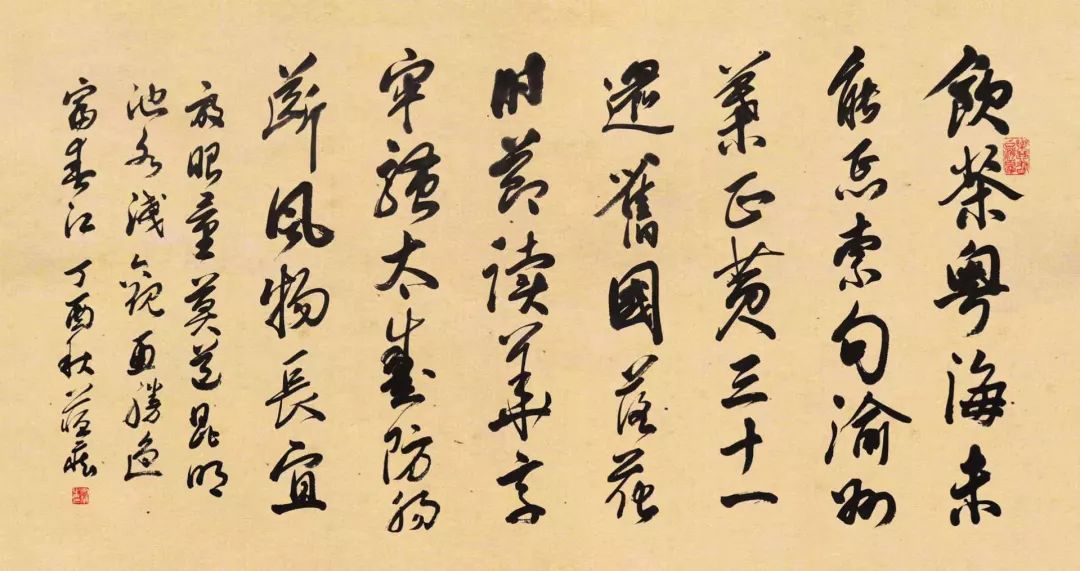 飲茶粤海未
能忘索句渝州
葉正黄三十一
還舊國落花
时節读華章
牢騷太盛防腸
斷風物長宜
放眼量莫道昆明
池水淺觀魚勝過
富春江 丁酉秋